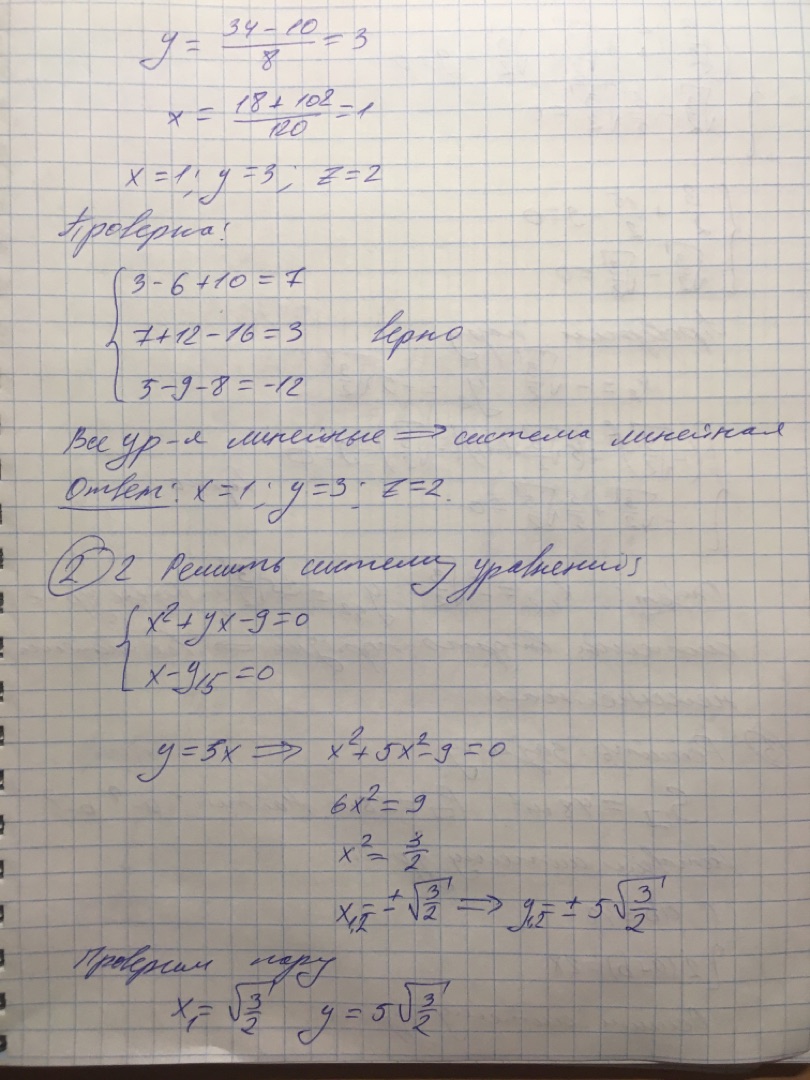 y = (34 - 10)/8 = 3
x = (18 + 102)/120 = 1
x = 1; y = 3; z = 2
Проверка:
{ 3 - 6 + 10 = 7
7 + 12 - 16 = 3 верно
5 - 9 - 8 = -12
Все ур-я линейные => система линейная
Ответ: x = 1; y = 3; z = 2.
② 2 Решить систему уравнений:
{ x² + yx - 9 = 0
x - y/5 = 0
y = 5x => x² + 5x² - 9 = 0
6x² = 9
x² = 3/2
x₁,₂ = ± √(3/2) => y₁,₂ = ± 5√(3/2)
Проверим пару
x₁ = √(3/2) y = 5√(3/2)